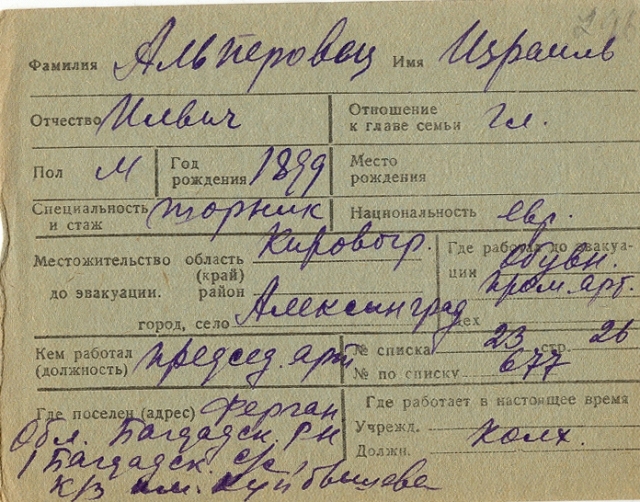 Фамилия Альперовец Имя Израиль
Отчество Илвич Отношение к главе семьи гл.
Пол М Год рождения 1899 Место рождения
Специальность и стаж шорник Национальность евр.
Местожительство область Кировогр. Где работал до эвакуа-
(край) ции Обувн.
до эвакуации. район пром. арт.
город, село Александград цех
Кем работал председ. арт № списка 23 стр. 26
(должность) № по списку 677
Где поселен (адрес) Ферган Где работает в настоящее время
Обл. Багдадск. р-н Учрежд. Колх.
Багдадск. с/с, Должн.
к/з им. Куйбышева